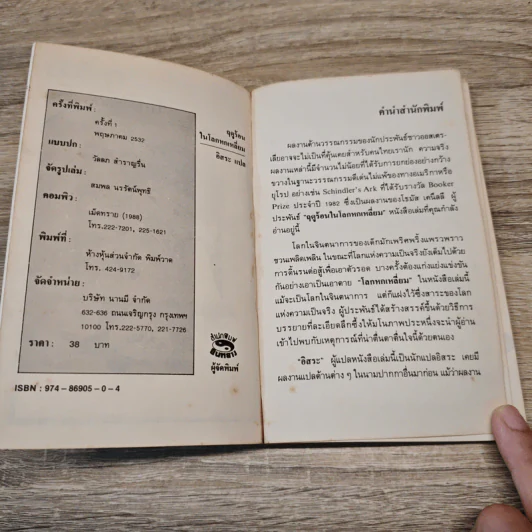 ครั้งที่พิมพ์ :
ครั้งที่ 1
พฤษภาคม 2532
แบบปก :
วัลลภ สำราญชื่น
จัดรูปเล่ม :
สมพล นรรัตน์พุทธิ
คอมพิว :
เม็ดทราย (1988)
โทร.222-7201, 225-1621
พิมพ์ที่ :
ห้างหุ้นส่วนจำกัด พิมพ์วาด
โทร. 424-9172
จัดจำหน่าย :
บริษัท นานมี จำกัด
632-636 ถนนเจริญกรุง กรุงเทพฯ
10100 โทร.222-5770, 221-7726
ราคา : 38 บาท
ISBN : 974-86905-0-4
ฤดูร้อน
ในโลกหกเหลี่ยม
อิสระ แปล
ผู้จัดพิมพ์
คำนำสำนักพิมพ์
ผลงานด้านวรรณกรรมของนักประพันธ์ชาวออสเตร-
เลียอาจจะไม่เป็นที่คุ้นเคยสำหรับคนไทยเรานัก ความจริง
ผลงานเหล่านี้มีจำนวนไม่น้อยที่ได้รับการยกย่องอย่างกว้าง
ขวางในฐานะวรรณกรรมดีเด่นไม่แพ้ของทางอเมริกาหรือ
ยุโรป อย่างเช่น Schindler's Ark ที่ได้รับรางวัล Booker
Prize ประจำปี 1982 ซึ่งเป็นผลงานของโธมัส เคนีลลี ผู้
ประพันธ์ "ฤดูร้อนในโลกหกเหลี่ยม" หนังสือเล่มที่คุณกำลัง
อ่านอยู่นี้
โลกในจินตนาการของเด็กมักเพริศพริ้งแพรวพราว
ชวนเพลิดเพลิน ในขณะที่โลกแห่งความเป็นจริงยังเต็มไปด้วย
การดิ้นรนต่อสู้เพื่อเอาตัวรอด บางครั้งต้องแก่งแย่งแข่งขัน
กันอย่างเอาเป็นเอาตาย "โลกหกเหลี่ยม" ในหนังสือเล่มนี้
แม้จะเป็นโลกในจินตนาการ แต่ก็แฝงไว้ซึ่งสาระของโลก
แห่งความเป็นจริง ผู้ประพันธ์ได้สร้างสรรค์ขึ้นด้วยวิธีการ
บรรยายที่ละเอียดลึกซึ้งให้มโนภาพประหนึ่งจะนำผู้อ่าน
เข้าไปพบกับเหตุการณ์ที่น่าตื่นตาตื่นใจนี้ด้วยตนเอง
"อิสระ" ผู้แปลหนังสือเล่มนี้เป็นนักแปลอิสระ เคยมี
ผลงานแปลด้านต่าง ๆ ในนามปากกาอื่นมาก่อน แม้ว่าผลงาน